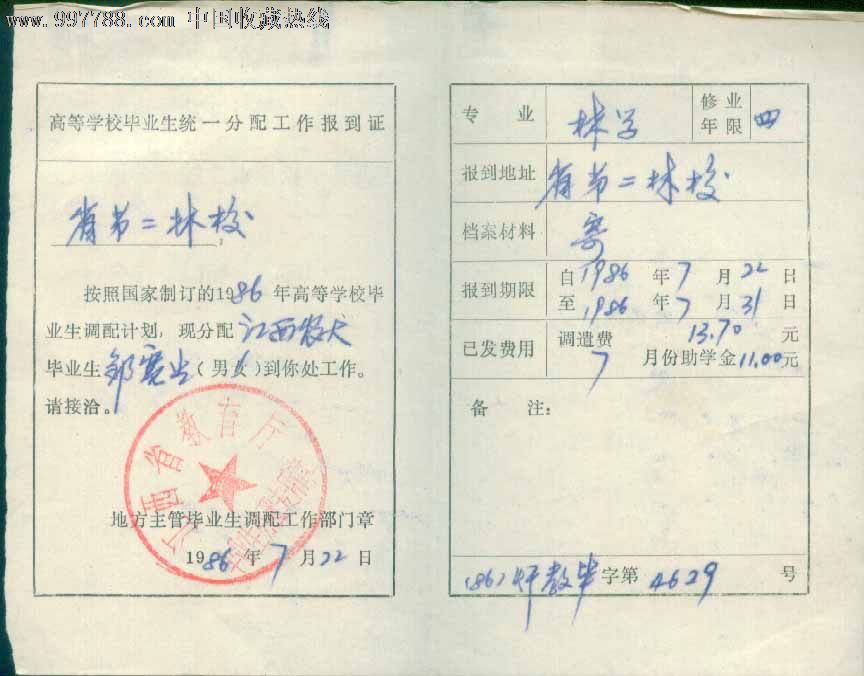 www.997788.com 中国收藏热线
高等学校毕业生统一分配工作报到证
省第二林校:
按照国家制订的1986年高等学校毕
业生调配计划，现分配江西农大
毕业生邹(男)到你处工作。
请接洽。
江西省教育厅
地方主管毕业生调配工作部门章
1986年7月22日
专业 林学 修业年限 四
报到地址 省第二林校
档案材料 寄
报到期限 自1986年7月22日
至1986年7月31日
已发费用 调遣费 13.70元
7月份助学金11.00元
备注：
(86)教毕字第4629号